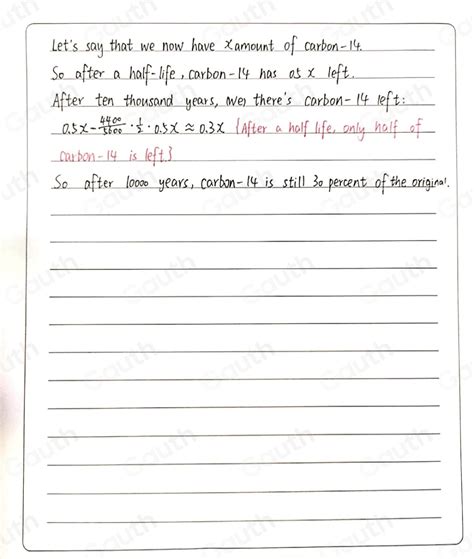 Let's say that we now have x amount of carbon-14.
So after a half-life, carbon-14 has 0.5 x left.
After ten thousand years, there's carbon-14 left:
0.5x - 4400/5600 · 1/2 · 0.5x ≈ 0.3x {After a half life, only half of
carbon-14 is left.}
So after 10000 years, carbon-14 is still 30 percent of the original.